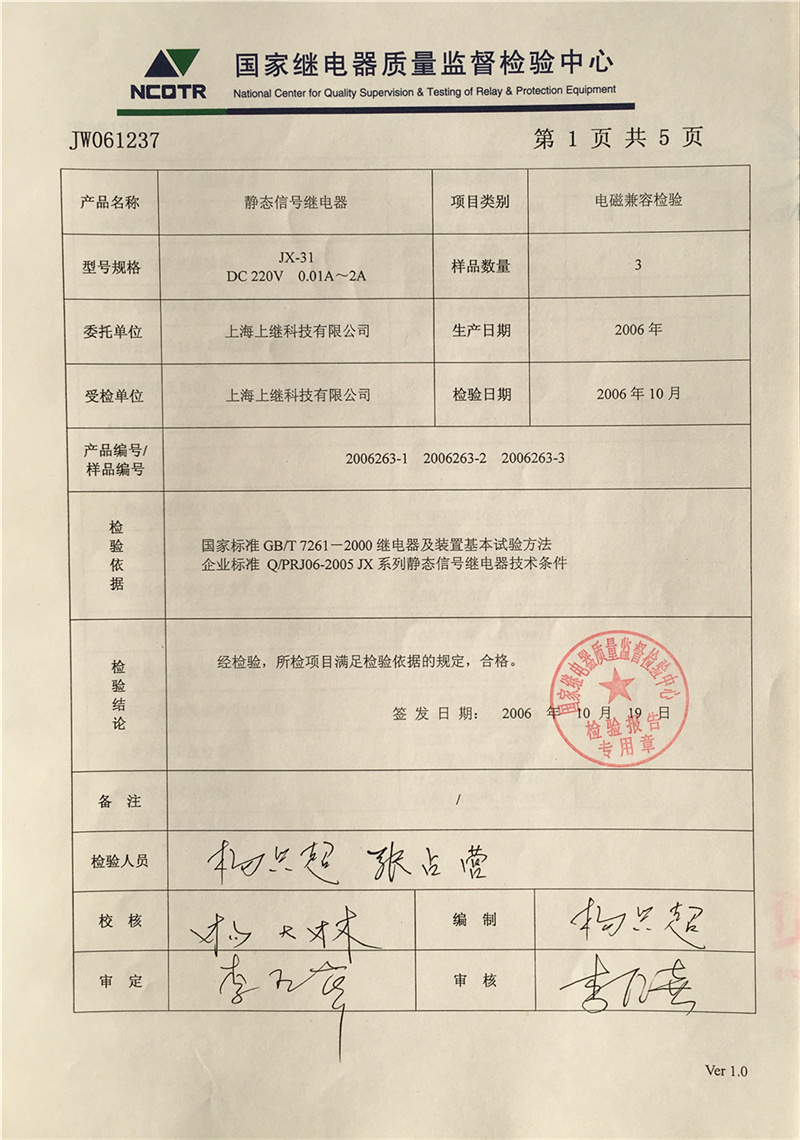 国家继电器质量监督检验中心
NCOTR
National Center for Quality Supervision & Testing of Relay & Protection Equipment
JW061237
第 1 页 共 5 页
产品名称 静态信号继电器 项目类别 电磁兼容检验
型号规格 JX-31 样品数量 3
DC 220V 0.01A~2A
委托单位 上海上继科技有限公司 生产日期 2006 年
受检单位 上海上继科技有限公司 检验日期 2006 年 10 月
产品编号/
样品编号
2006263-1 2006263-2 2006263-3
检验依据
国家标准 GB/T 7261－2000 继电器及装置基本试验方法
企业标准 Q/PRJ06-2005 JX 系列静态信号继电器技术条件
检验结论
经检验，所检项目满足检验依据的规定，合格。
签 发 日 期： 2006 年 10 月 19 日
国家继电器质量监督检验中心
检验报告
专用章
备 注 /
检验人员 张占营
校 核 编 制
审 定 审 核
Ver 1.0